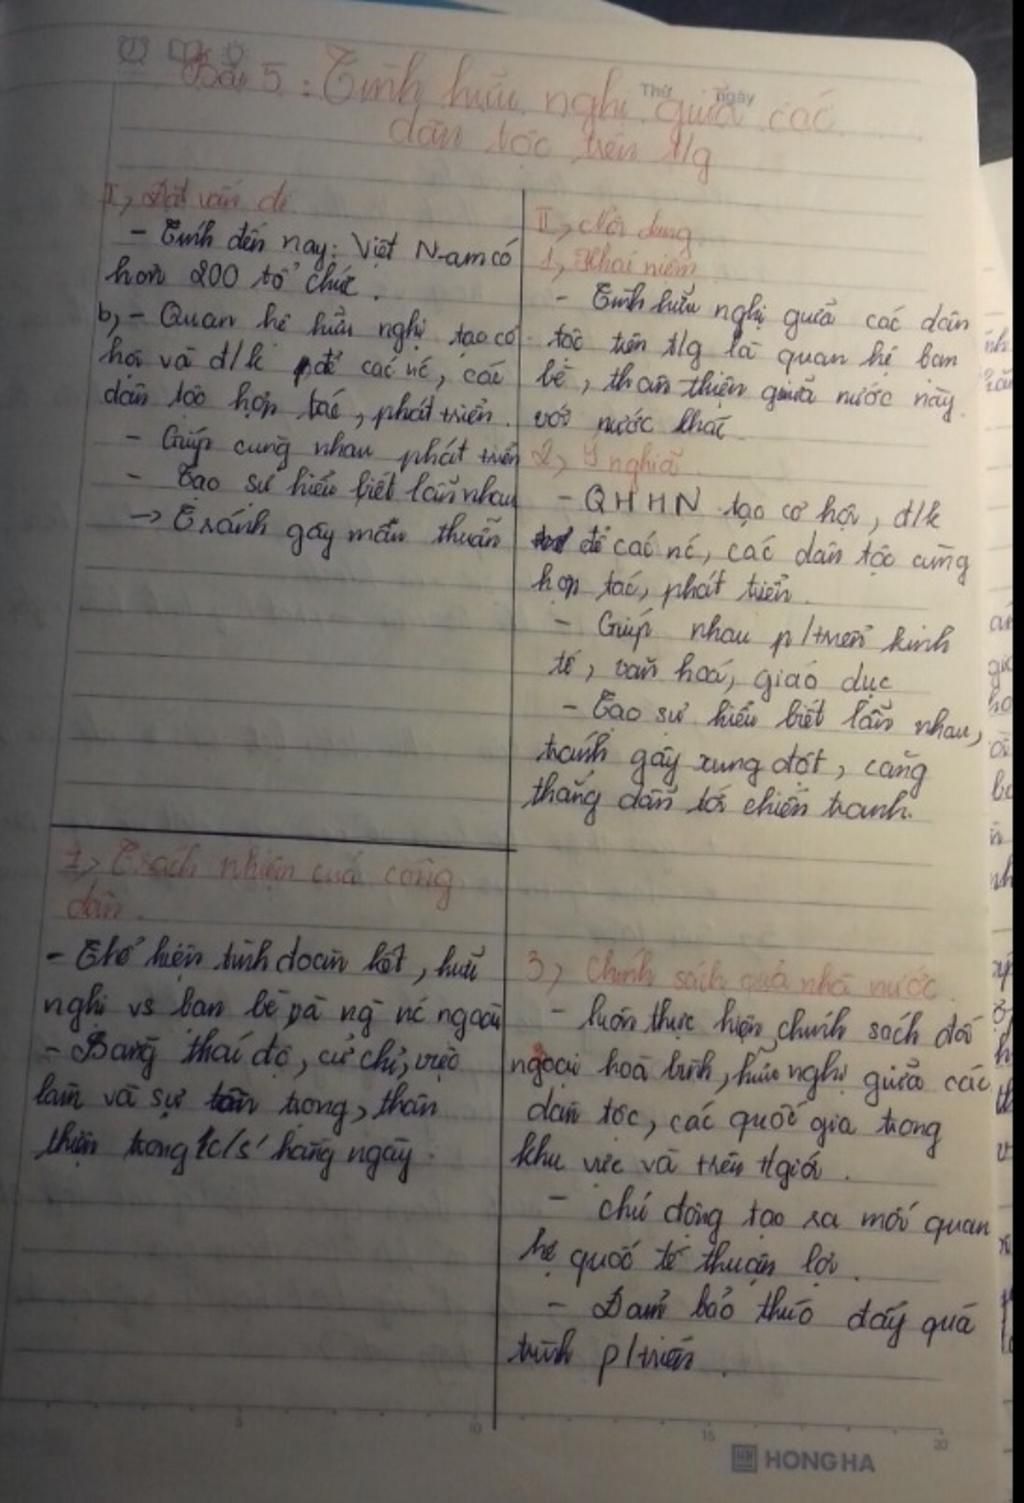 Thứ
ngày
Bài 5 : Tình hữu nghị giữa các
dân tộc trên t/g
I, Đặt vấn đề
- Tính đến nay: Việt Nam có
hơn 200 tổ chức.
b, - Quan hệ hữu nghị tạo cơ
hội và đ/k để các nc, các
dân tộc hợp tác, phát triển.
- Giúp cùng nhau phát triển
- Tạo sự hiểu biết lẫn nhau
-> Tránh gây mẫu thuẫn
II, Nội dung
1, Khái niệm
- Tình hữu nghị giữa các dân
tộc trên t/g là quan hệ bạn
bè, thân thiện giữa nước này
với nước khác.
2, Ý nghĩa.
- QHHN tạo cơ hội, đ/k
để các nc, các dân tộc cùng
hợp tác, phát triển.
- Giúp nhau p/triển kinh
tế, văn hoá, giáo dục
- Tạo sự hiểu biết lẫn nhau,
tránh gây xung đột, căng
thẳng dẫn tới chiến tranh.
Trách nhiệm của công
dân.
- Thể hiện tình đoàn kết, hữu
nghị vs bạn bè và ng nc ngoài
- Bằng thái độ, cử chỉ, việc
làm và sự tôn trọng, thân
thiện trong c/s hàng ngày.
3, Chính sách của nhà nước.
- luôn thực hiện chính sách đối
ngoại hoà bình, hữu nghị giữa các
dân tộc, các quốc gia trong
khu vực và trên t/giới.
- chủ động tạo ra mối quan
hệ quốc tế thuận lợi.
- Đảm bảo thúc đẩy quá
trình p/triển.
5 10 15 20
HONG HA